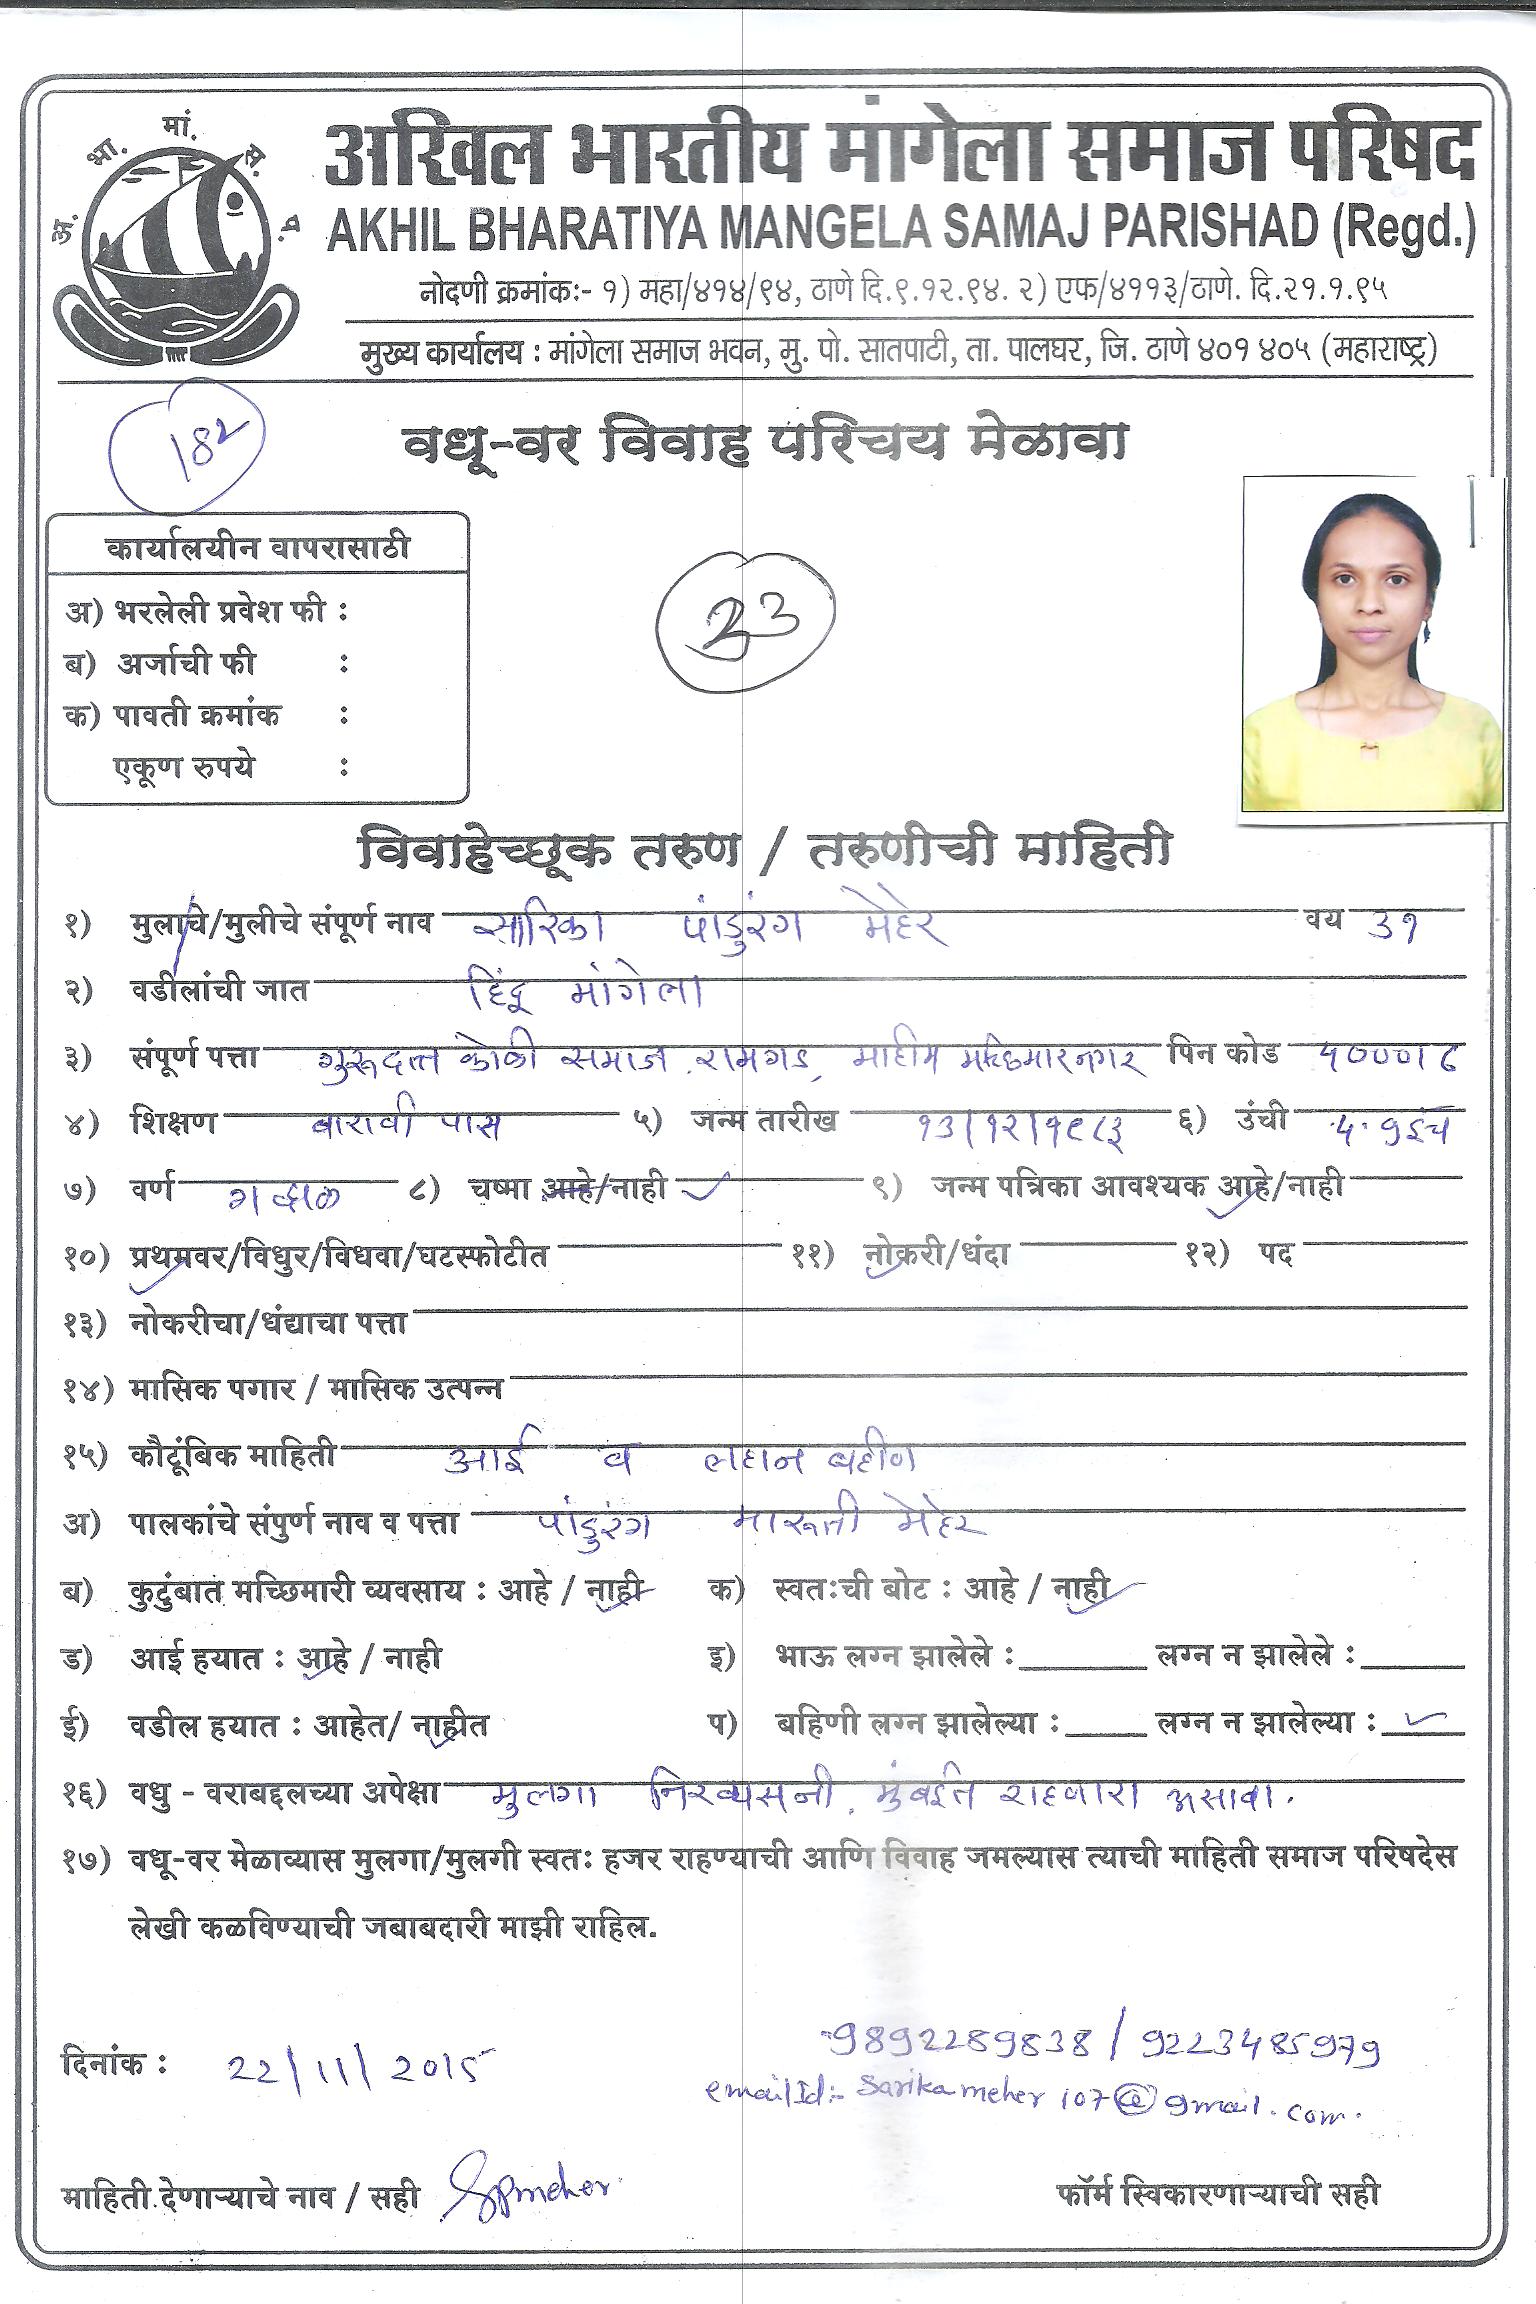 अ. भा. मां. स. प.
अखिल भारतीय मांगेला समाज परिषद
AKHIL BHARATIYA MANGELA SAMAJ PARISHAD (Regd.)
नोदणी क्रमांकः- १) महा/४१४/९४, ठाणे दि.९.१२.९४. २) एफ/४११३/ठाणे. दि.२१.१.९५
मुख्य कार्यालय : मांगेला समाज भवन, मु. पो. सातपाटी, ता. पालघर, जि. ठाणे ४०१ ४०५ (महाराष्ट्र)
182
वधू-वर विवाह परिचय मेळावा
कार्यालयीन वापरासाठी
अ) भरलेली प्रवेश फी :
ब) अर्जाची फी :
क) पावती क्रमांक :
एकूण रुपये :
23
विवाहेच्छूक तरुण / तरुणीची माहिती
१) मुलाचे/मुलीचे संपूर्ण नाव सारिका पांडुरंग मेहेर वय ३१
२) वडीलांची जात हिंदू मांगेला
३) संपूर्ण पत्ता गुरूदत्त कोळी समाज. रामगड, माहीम मच्छिमारनगर पिन कोड ४०००१६
४) शिक्षण बारावी पास ५) जन्म तारीख १३/१२/१९८३ ६) उंची ५.१ इंच
७) वर्ण गव्हाळ ८) चष्मा आहे/नाही ✓ ९) जन्म पत्रिका आवश्यक आहे/नाही
१०) प्रथमवर/विधुर/विधवा/घटस्फोटीत ११) नोकरी/धंदा १२) पद
१३) नोकरीचा/धंद्याचा पत्ता
१४) मासिक पगार / मासिक उत्पन्न
१५) कौटूंबिक माहिती आई व लहान बहीण
अ) पालकांचे संपुर्ण नाव व पत्ता पांडुरंग मारूती मेहेर
ब) कुटुंबात मच्छिमारी व्यवसाय : आहे / नाही क) स्वतःची बोट : आहे / नाही
ड) आई हयात : आहे / नाही इ) भाऊ लग्न झालेले : लग्न न झालेले :
ई) वडील हयात : आहेत/ नाहीत प) बहिणी लग्न झालेल्या : लग्न न झालेल्या : ✓
१६) वधु - वराबद्दलच्या अपेक्षा मुलगा निरव्यसनी. मुंबईत राहणारा असावा.
१७) वधू-वर मेळाव्यास मुलगा/मुलगी स्वतः हजर राहण्याची आणि विवाह जमल्यास त्याची माहिती समाज परिषदेस
लेखी कळविण्याची जबाबदारी माझी राहिल.
9892289838 / 9223485979
दिनांक : 22/11/2015
emailId:- sarikameher107@gmail.com.
माहिती देणाऱ्याचे नाव / सही SPmeher फॉर्म स्विकारणाऱ्याची सही